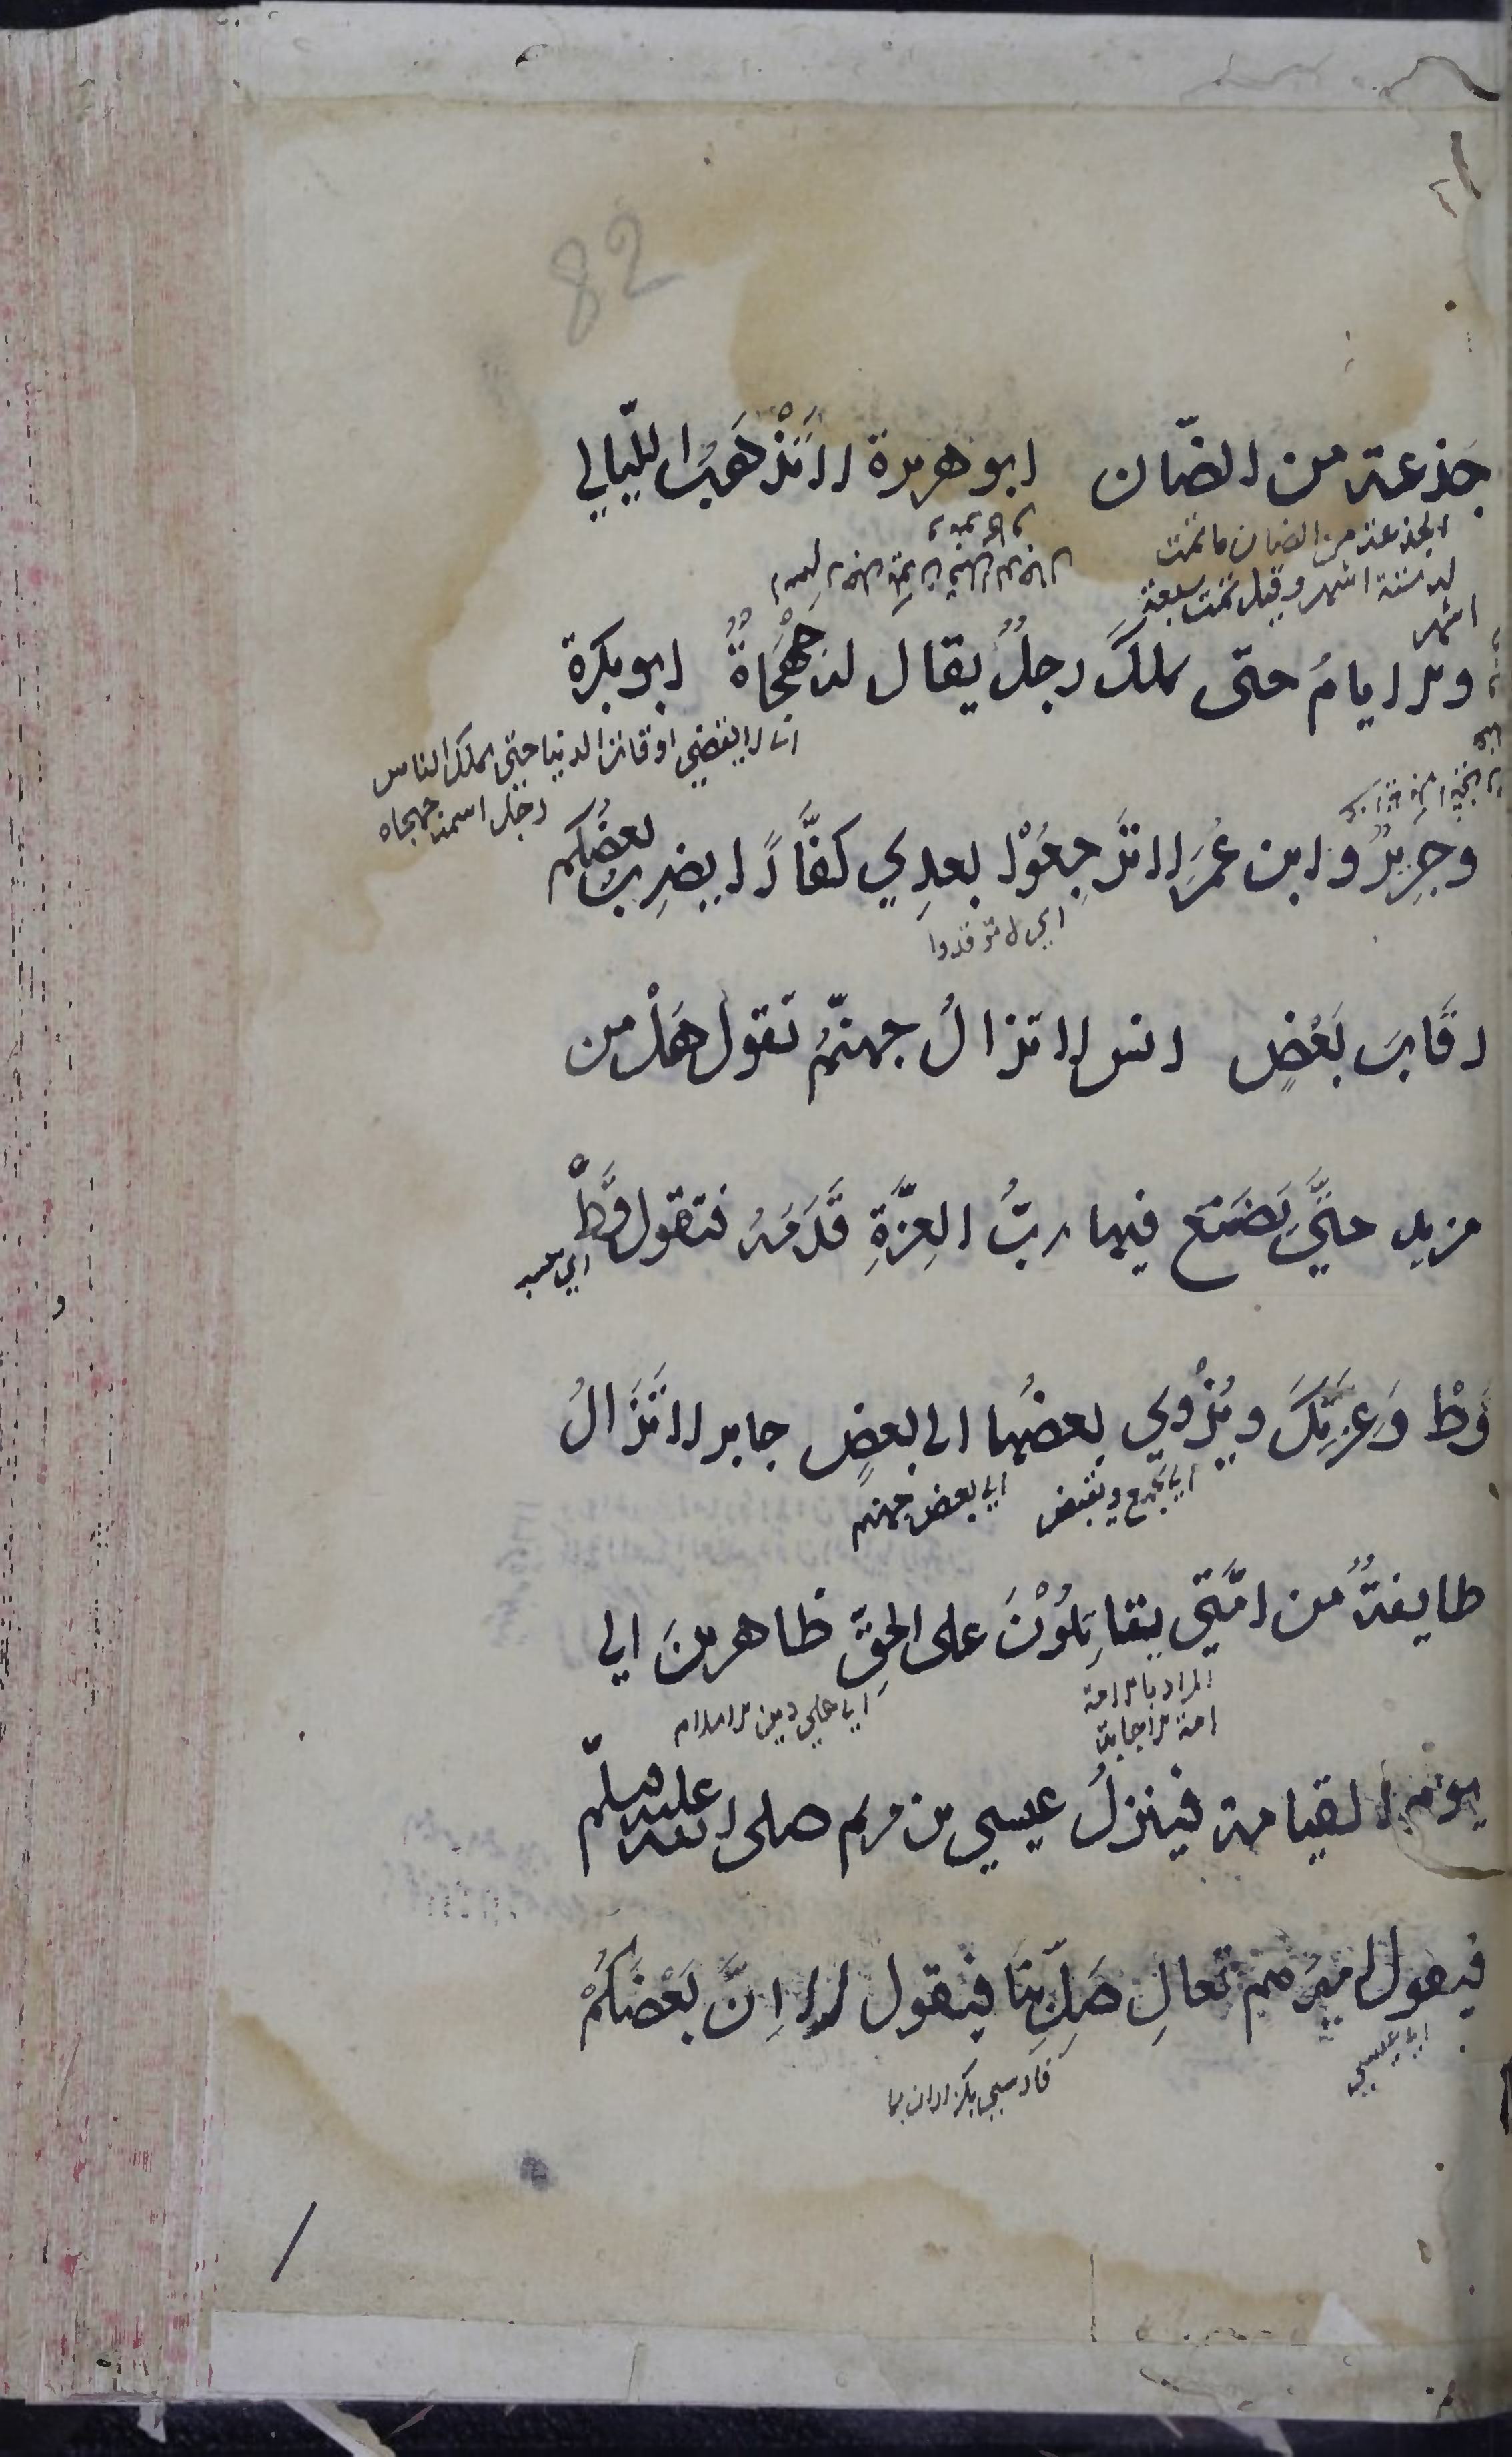 82
جذعة من الضّان ابو هريرة لا تَذْهَبُ اللّيالي
الجذعة من الضان ما تمت
له ستة اشهر وقيل تمت سبعة
اشهر
ولا ايامُ حتى يملكَ رجلٌ يقال له جَهْجَاهٌ ابو بكرة
اي لا ينقضي اوقات الدنيا حتى يملك الناس
رجل اسمه جهجاه
وجرِيرٌ و ابن عُمَرَ لا تَرجِعُوْا بعدِي كفَّارًا يضرِبُ بعضُكم
رقَابَ بَعْضٍ انس لا تزالُ جهنّمُ تقول هَلْ من
مزيد حتَّى يَضَعَ فيها ربُّ العِزَّةِ قَدَمَهُ فتقول قَطْ
اي حسبه
قَطْ وَعِزَّتِكَ ويُزْوي بعضُها الى بعضٍ جابر لا تَزَالُ
اي يجمع ويقبض
اي بعض جهنم
طايفةٌ من امَّتي يقاتِلُوْنَ على الحقِّ ظاهرينَ الي
المراد بالامة
امة الاجابة
اي على دين الاسلام
يوم القيامة فينزلُ عيسي بن مريم صلى الله عليه وسلّم
فيقول اميرُهم تعالِ صَلِّ بنَا فيقول لا اِنَّ بَعْضَكُمْ
اي عيسي